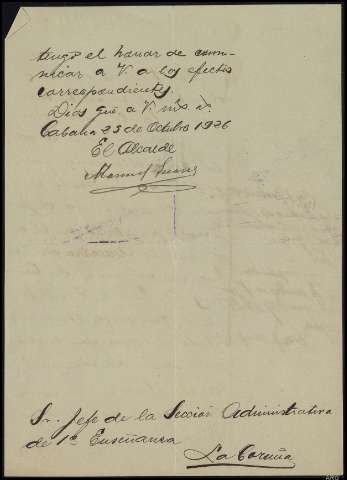 tengo el honor de comu-
nicar a V. a los efectos
correspondientes.
Dios gue. a V. ms. as
Cabana 25 de Octubre 1926
El Alcalde
Manuel
Sr. Jefe de la Sección Administrativa
de 1ª Enseñanza
La Coruña